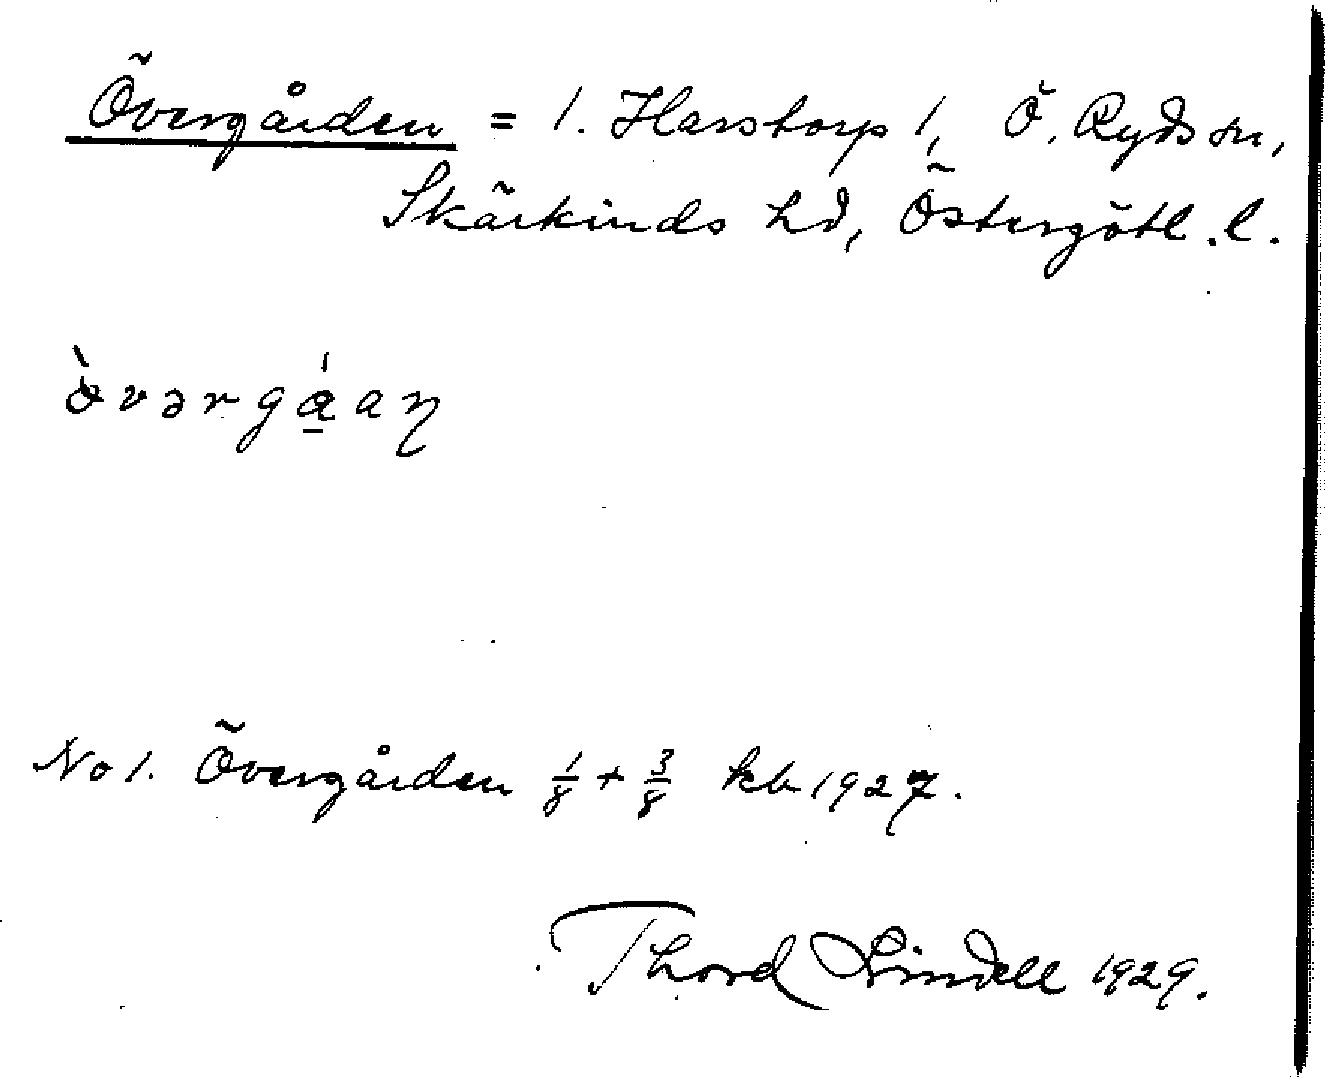 Övergården = 1. Harstorp 1, Ö. Ryds sn,
Skärkinds hd, Östergötl. l.
ò̀vərgá̱aɳ
No 1. Övergården 1/8 + 3/8 kb 1927.
Thord Lindell 1929.